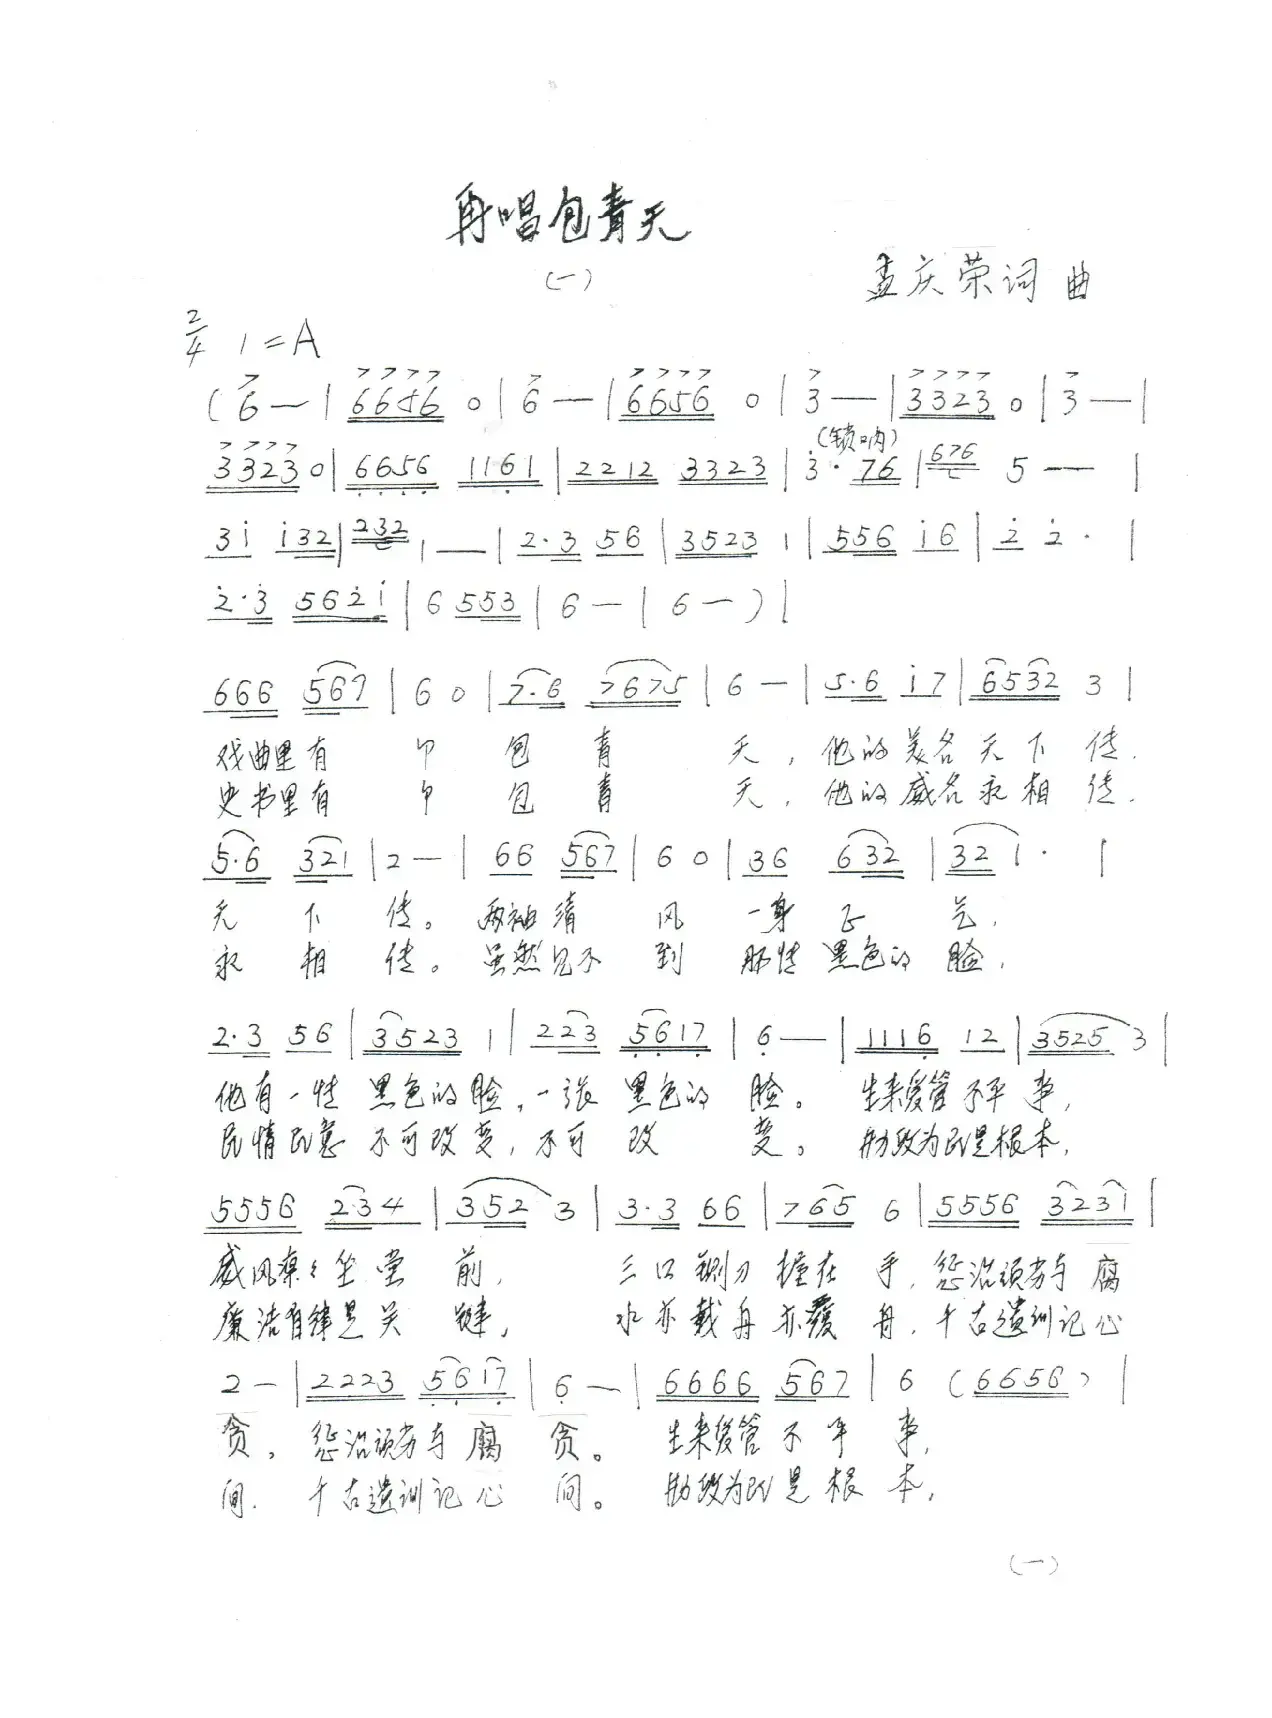 再唱包青天
(一)
孟庆荣词曲
2/4 1=A
(6 — | 6656 0 | 6 — | 6656 0 | 3 — | 3323 0 | 3 — |
(锁呐)
3323 0 | 6656 1161 | 2212 3323 | 3· 76 | 676 5 — |
3i i32 | 232 1 — | 2·3 56 | 3523 1 | 556 i6 | 2 2· |
2·3 562i | 6 553 | 6 — | 6 — ) |
666 567 | 6 0 | 7·6 7675 | 6 — | 5·6 i7 | 6532 3 |
戏曲里有 个 包 青 天, 他的美名天下传.
史书里有 个 包 青 天, 他的威名永相传.
5·6 321 | 2 — | 66 567 | 6 0 | 36 632 | 32 1· |
天 下 传。两袖清 风 一身正 气,
永 相 传。虽然见不 到 黑色的 脸,
2·3 56 | 3523 1 | 223 5617 | 6 — | 1116 12 | 3525 3 |
他有一 黑色的脸,一张 黑色的 脸。 生来爱管不平 事,
民情民意 不可改变,不可 改 变。 为民是根本,
5556 234 | 352 3 | 3·3 66 | 765 6 | 5556 3231 |
威风凛々坐堂 前, 三口铡刀握在 手, 惩治 与腐
廉洁自律是关 键, 水亦载舟亦覆 舟, 千古遗训记心
2 — | 2223 5617 | 6 — | 6666 567 | 6 (6656) |
贪, 惩治 与 腐 贪。 生来爱管 不 平 事,
间. 千古遗训记 心 间。 为民 是 根 本,
(一)